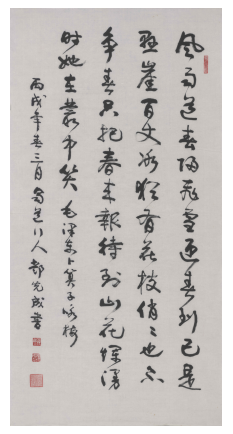 风雨送春归飞雪迎春到已是
悬崖百丈冰犹有花枝俏俏也不
争春只把春来报待到山花烂漫
时她在丛中笑 毛泽东卜算子咏梅
丙戌年春三月 蜀道行人 郝